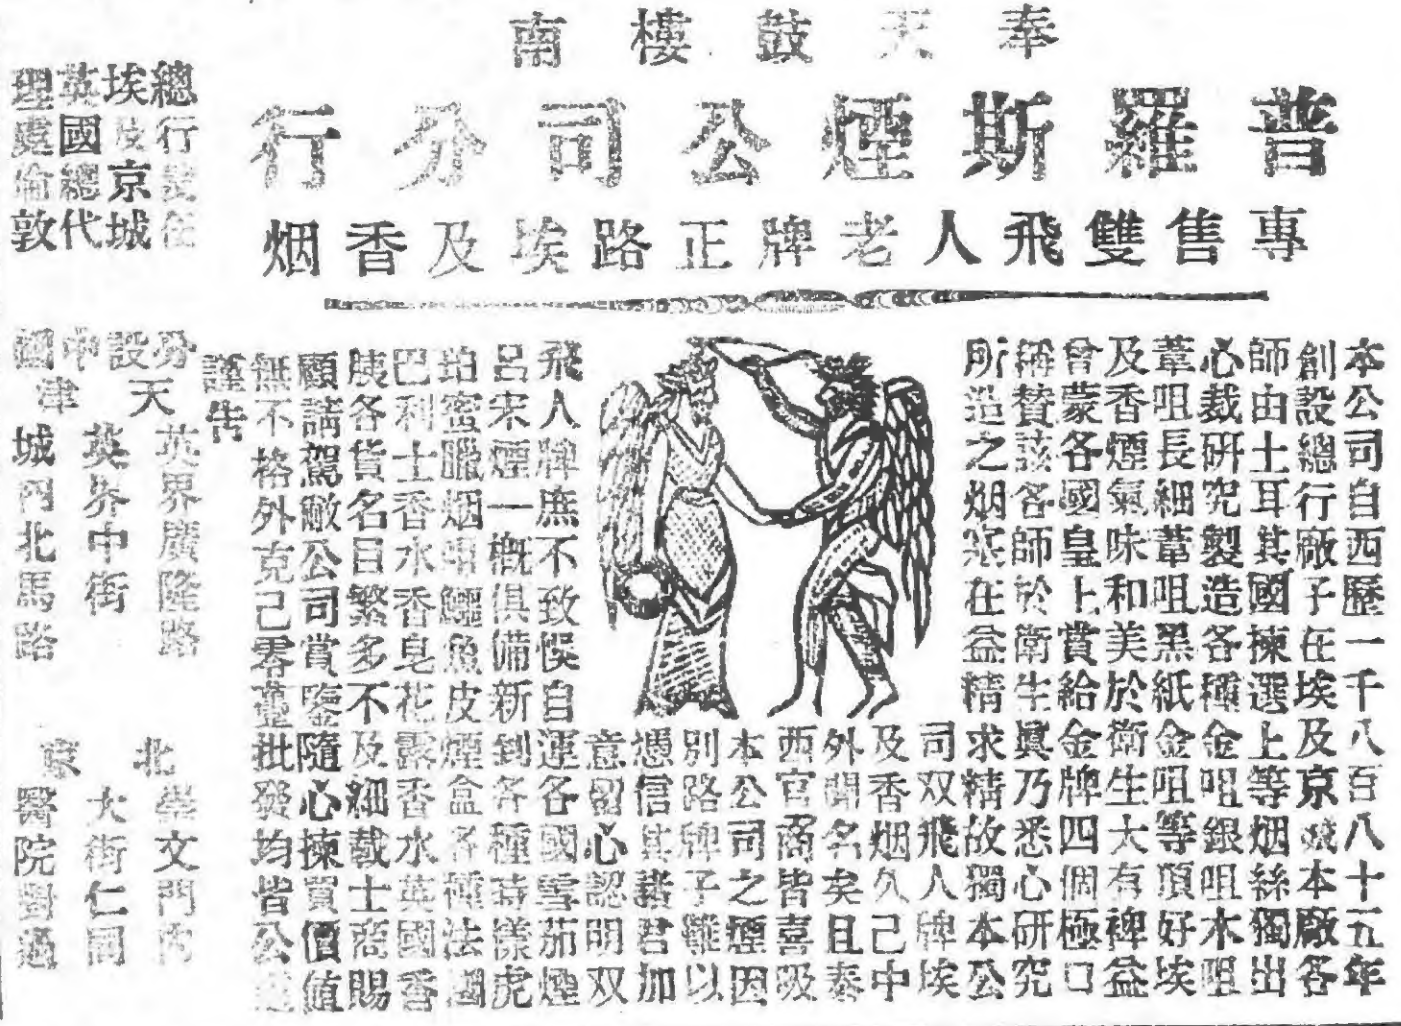 奉天鼓樓南
普羅斯煙公司分行
專售雙飛人老牌正路埃及香烟
本公司自西歷一千八百八十五年
創設總行廠子在埃及京城本廠各
師由土耳其國揀選上等烟絲獨出
心裁研究製造各種金咀銀咀木咀
葦咀長細葦咀黑紙金咀等頂好埃
及香煙氣味和美於衛生大有裨益
曾蒙各國皇上賞給金牌四個極口
稱贊該各師於衛生眞乃悉心研究
所造之烟寔在益精求精故獨本公
司双飛人牌埃
及香烟久已中
外聞名矣且奉
西官商皆喜吸
本公司之煙因
別路牌子難以
憑信其諸君加
意留心認明双
飛人牌庶不致悞自運各國雪茄煙
呂宋煙一概俱備新到各種時樣虎
珀蜜臘烟咀鱷魚皮煙盒各種法國
巴利士香水香皂花露香水英國香
胰各貨名目繁多不及細載士商賜
顧請駕敝公司賞鑒隨心揀買價值
無不格外克己零躉批發均皆公
謹告
總行設在
埃及京城
英國總代
理處倫敦
分設中國
天津
英界廣隆路
英界中街
城內北馬路
北京
崇文門內
大街仁同
醫院對過